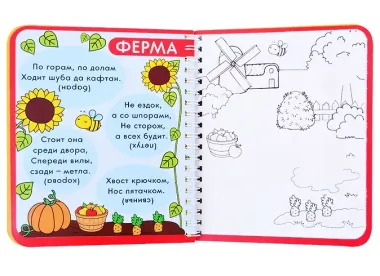 ФЕРМА
По горам, по долам
Ходит шуба да кафтан.
(баран)
Не ездок,
а со шпорами,
Не сторож,
а всех будит.
(петух)
Стоит она
среди двора,
Спереди вилы,
сзади – метла.
(корова)
Хвост крючком,
Нос пятачком.
(свинья)